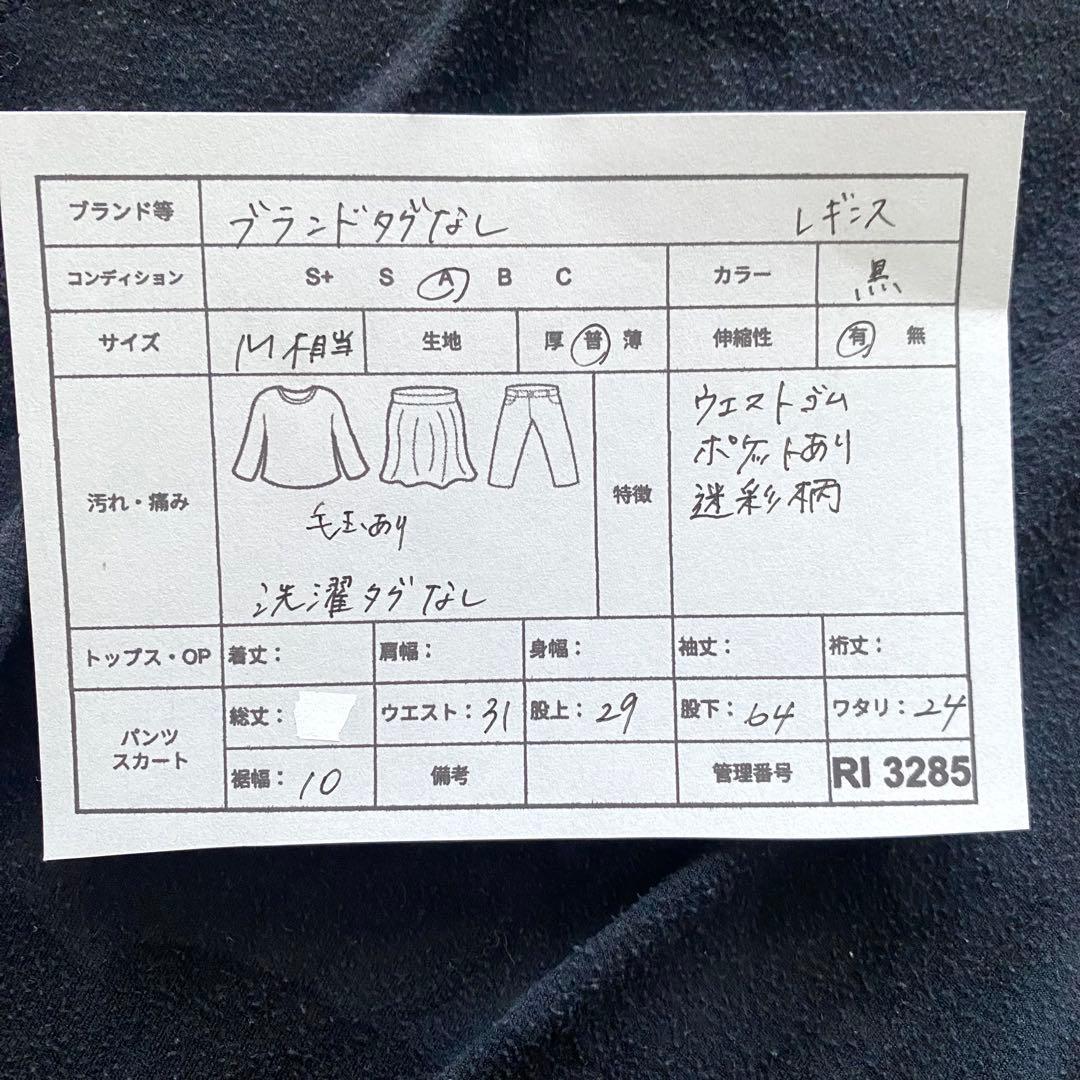 ブランド等 ブランドタグなし レギンス
コンディション S+ S A B C カラー 黒
サイズ M相当 生地 厚 普 薄 伸縮性 有 無
汚れ・痛み 毛玉あり 特徴 ウエストゴム
ポケットあり
迷彩柄
洗濯タグなし
トップス・OP 着丈: 肩幅: 身幅: 袖丈: 裄丈:
パンツ スカート 総丈: ウエスト:31 股上:29 股下:64 ワタリ:24
裾幅:10 備考 管理番号 RI 3285